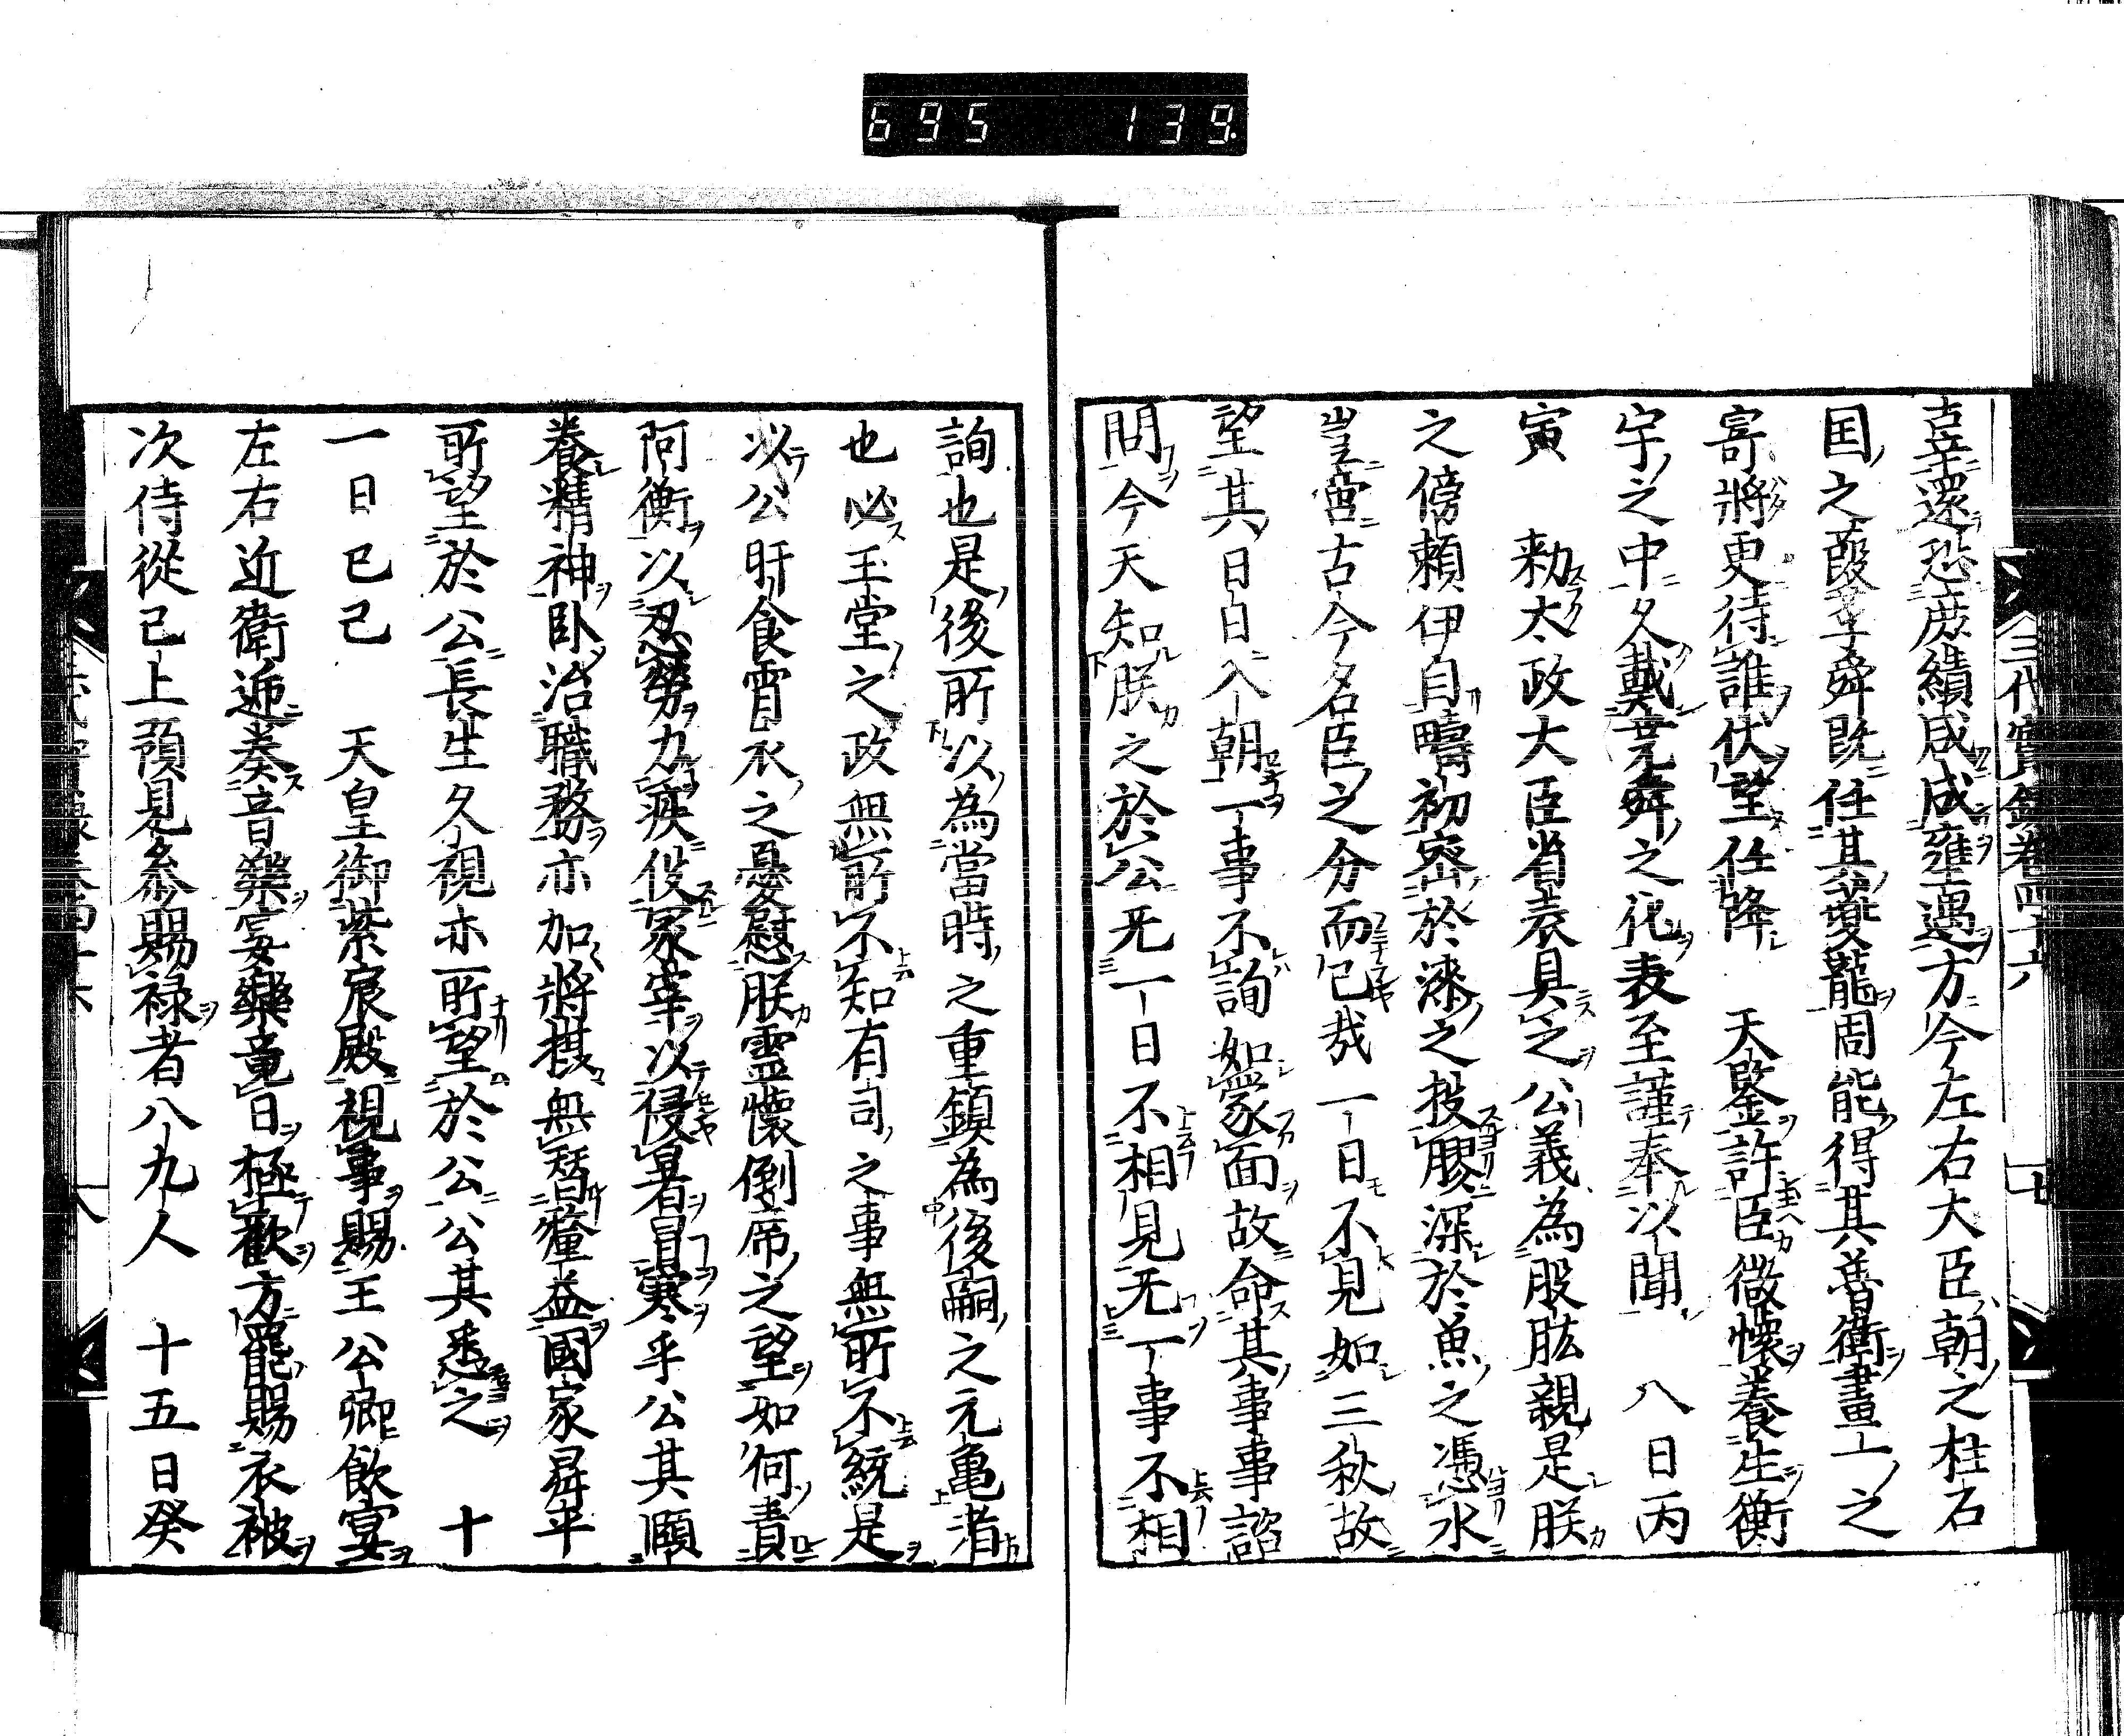 695 139
三代實錄卷四十六 七
喜還恐庶績咸成雍遇方今左右大臣朝之柱石
国之葭莩舜既任其夔龍周能得其善衛畫一之
寄將更待誰伏望任降 天鑒許臣微懷養生衡
宇之中久戴堯舜之化表至謹奉以聞 八日丙
寅 勅太政大臣省表具之公義為股肱親是朕
之傍頼伊自疇初密於漆之投膠深於魚之憑水
豈啻古今名臣之分而已哉一日不見如三秋故
望其日日入朝一事不詢如蒙面故命其事事諮
問今天知朕之於公无一日不相見无一事不相
詢也是後所以為當時之重鎮為後嗣之元亀者
也必玉堂之政無所不知有司之事無所不統是
以公旰食宵衣之憂慰朕霊懐側席之望如何責
阿衡以忍勞力疾役冢宰以侵暑冒寒乎公其頤
養精神臥治職務亦加將攝無朁釐益國家昇平
所望於公長生久視亦所望於公公其悉之 十
一日已己 天皇御紫宸殿視事賜王公卿飲宴
左右近衛遞奏音樂宴樂竟日極歡方罷賜衣被
次侍從已上預見參賜禄者八九人 十五日癸